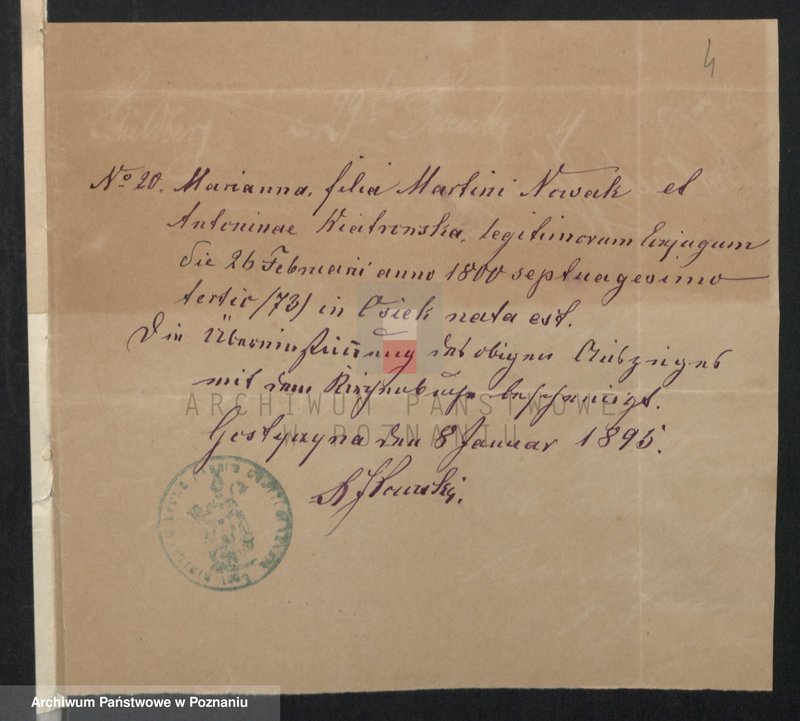 4
No 20. Marianna, filia Martini Nowak et
Antoninae Wiatrowska, legitimorum Conjugum
die 26 Februarii anno 1800 septuagesimo
tertio (73) in Osiek nata est.
Die Übereinstimmung des obigen Auszuges
mit dem Kirchenbuche bescheinigt.
ARCHIWUM PAŃSTWOWE
W POZNANIU
Gostyczyna den 8 Januar 1895.
Archiwum Państwowe w Poznaniu